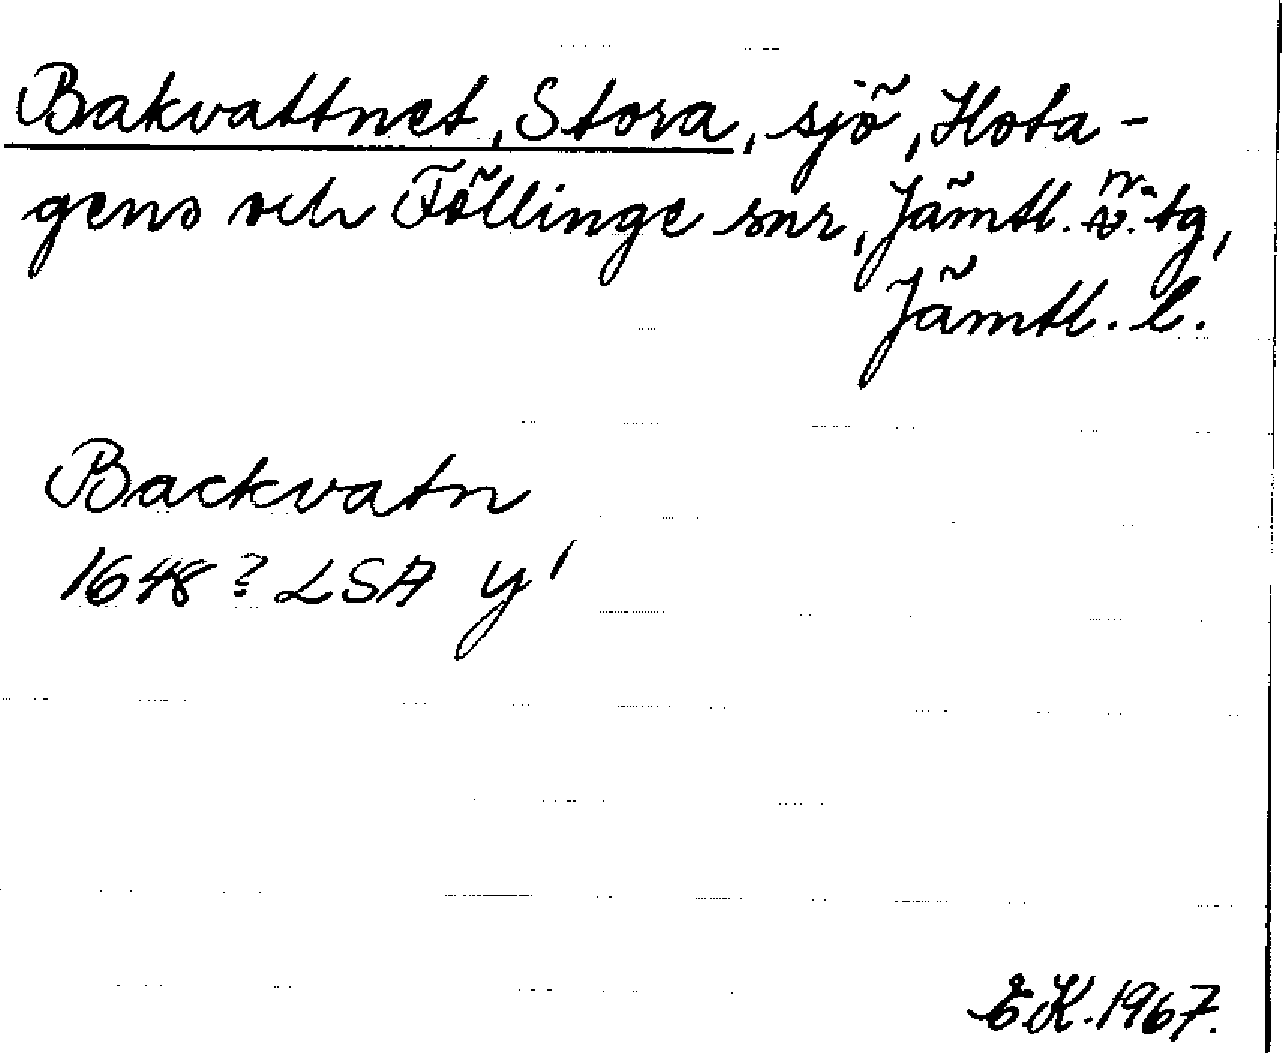 Bakvattnet, Stora, sjö, Hota-
gens och Föllinge snr, Jämtl. n. tg,
Jämtl. l.
Backvatn
1648? LSA y'
E.K. 1967.